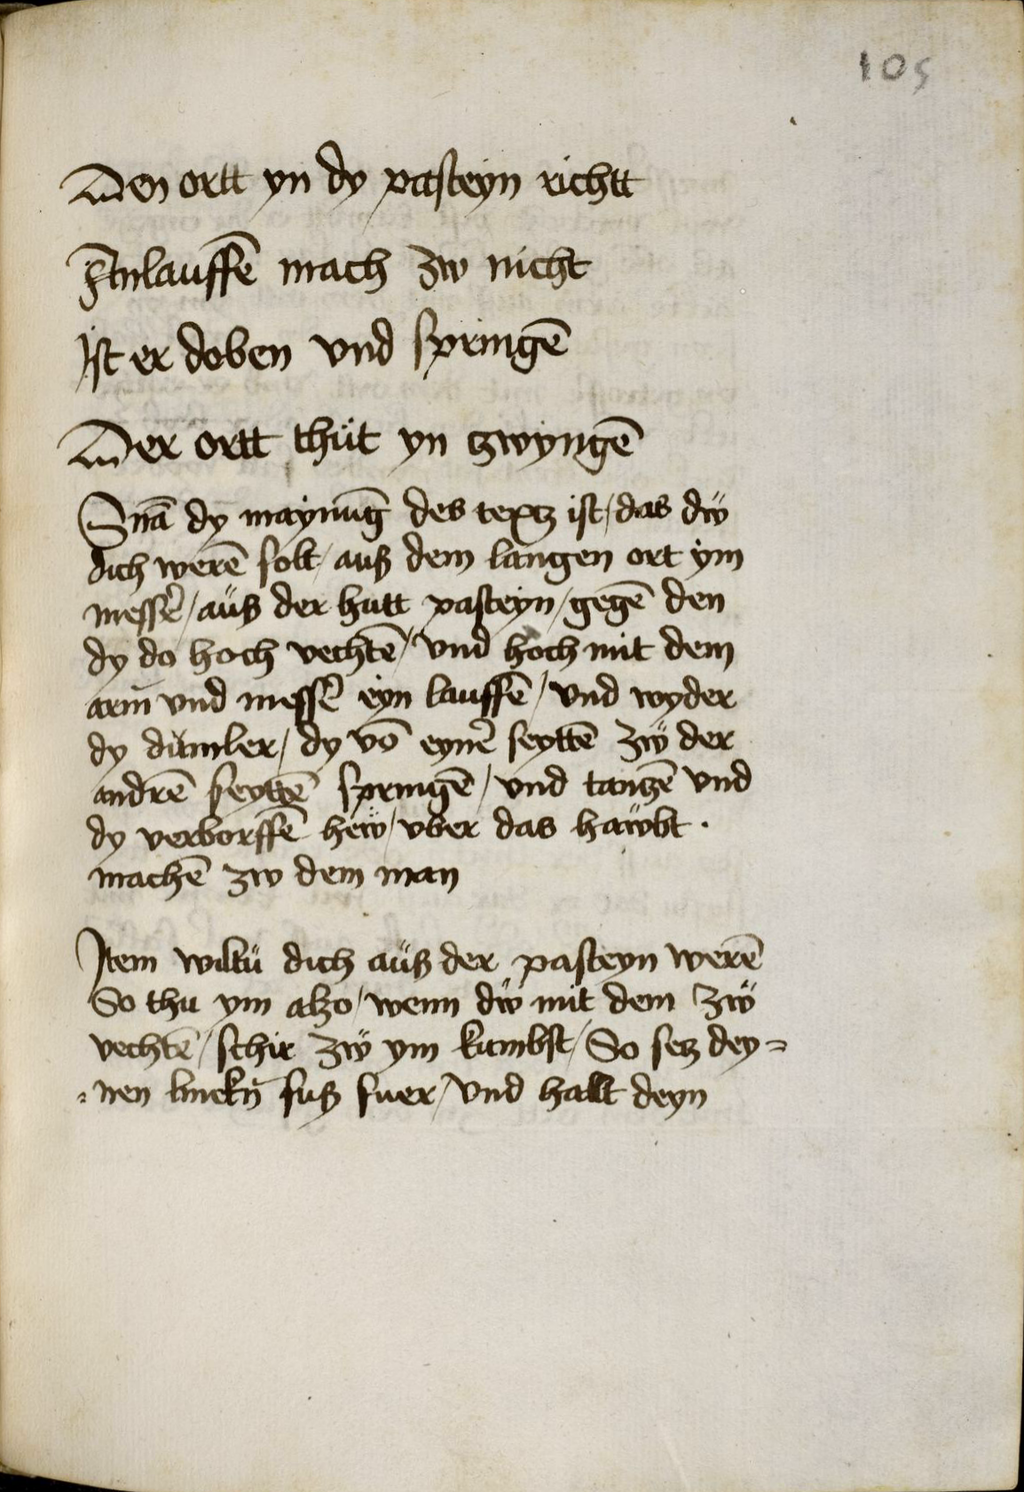 105
Den ortt yn dy pasteyn richtt
Einlauffē mach zw nicht
Ist er doben vnd springē
Der ortt thüt yn tzwyngē
Snā dy maynūg des textz ist / das dẅ
dich werē solt / auß dem langen ort ym
messē / aüß der hutt pasteyn / gegē den
dy do hoch vechtē / vnd hoch mit dem
arm vnd messē eyn lauffē / vnd wyder
dy dümler / dy vō eynē seyttē zẅ der
andrē seyttē springē / vnd tantzē vnd
dy verborffē heẅ / vber das haẅbt ·
machē zw dem man
Item wiltü dich aüß der pasteyn werē
So thu ym alzo / wenn dẅ mit dem zẅ
vechtē / schir zẅ ym kumbst / So setz dey=
=nen linckn̄ fuß fuer / vnd hallt deyn